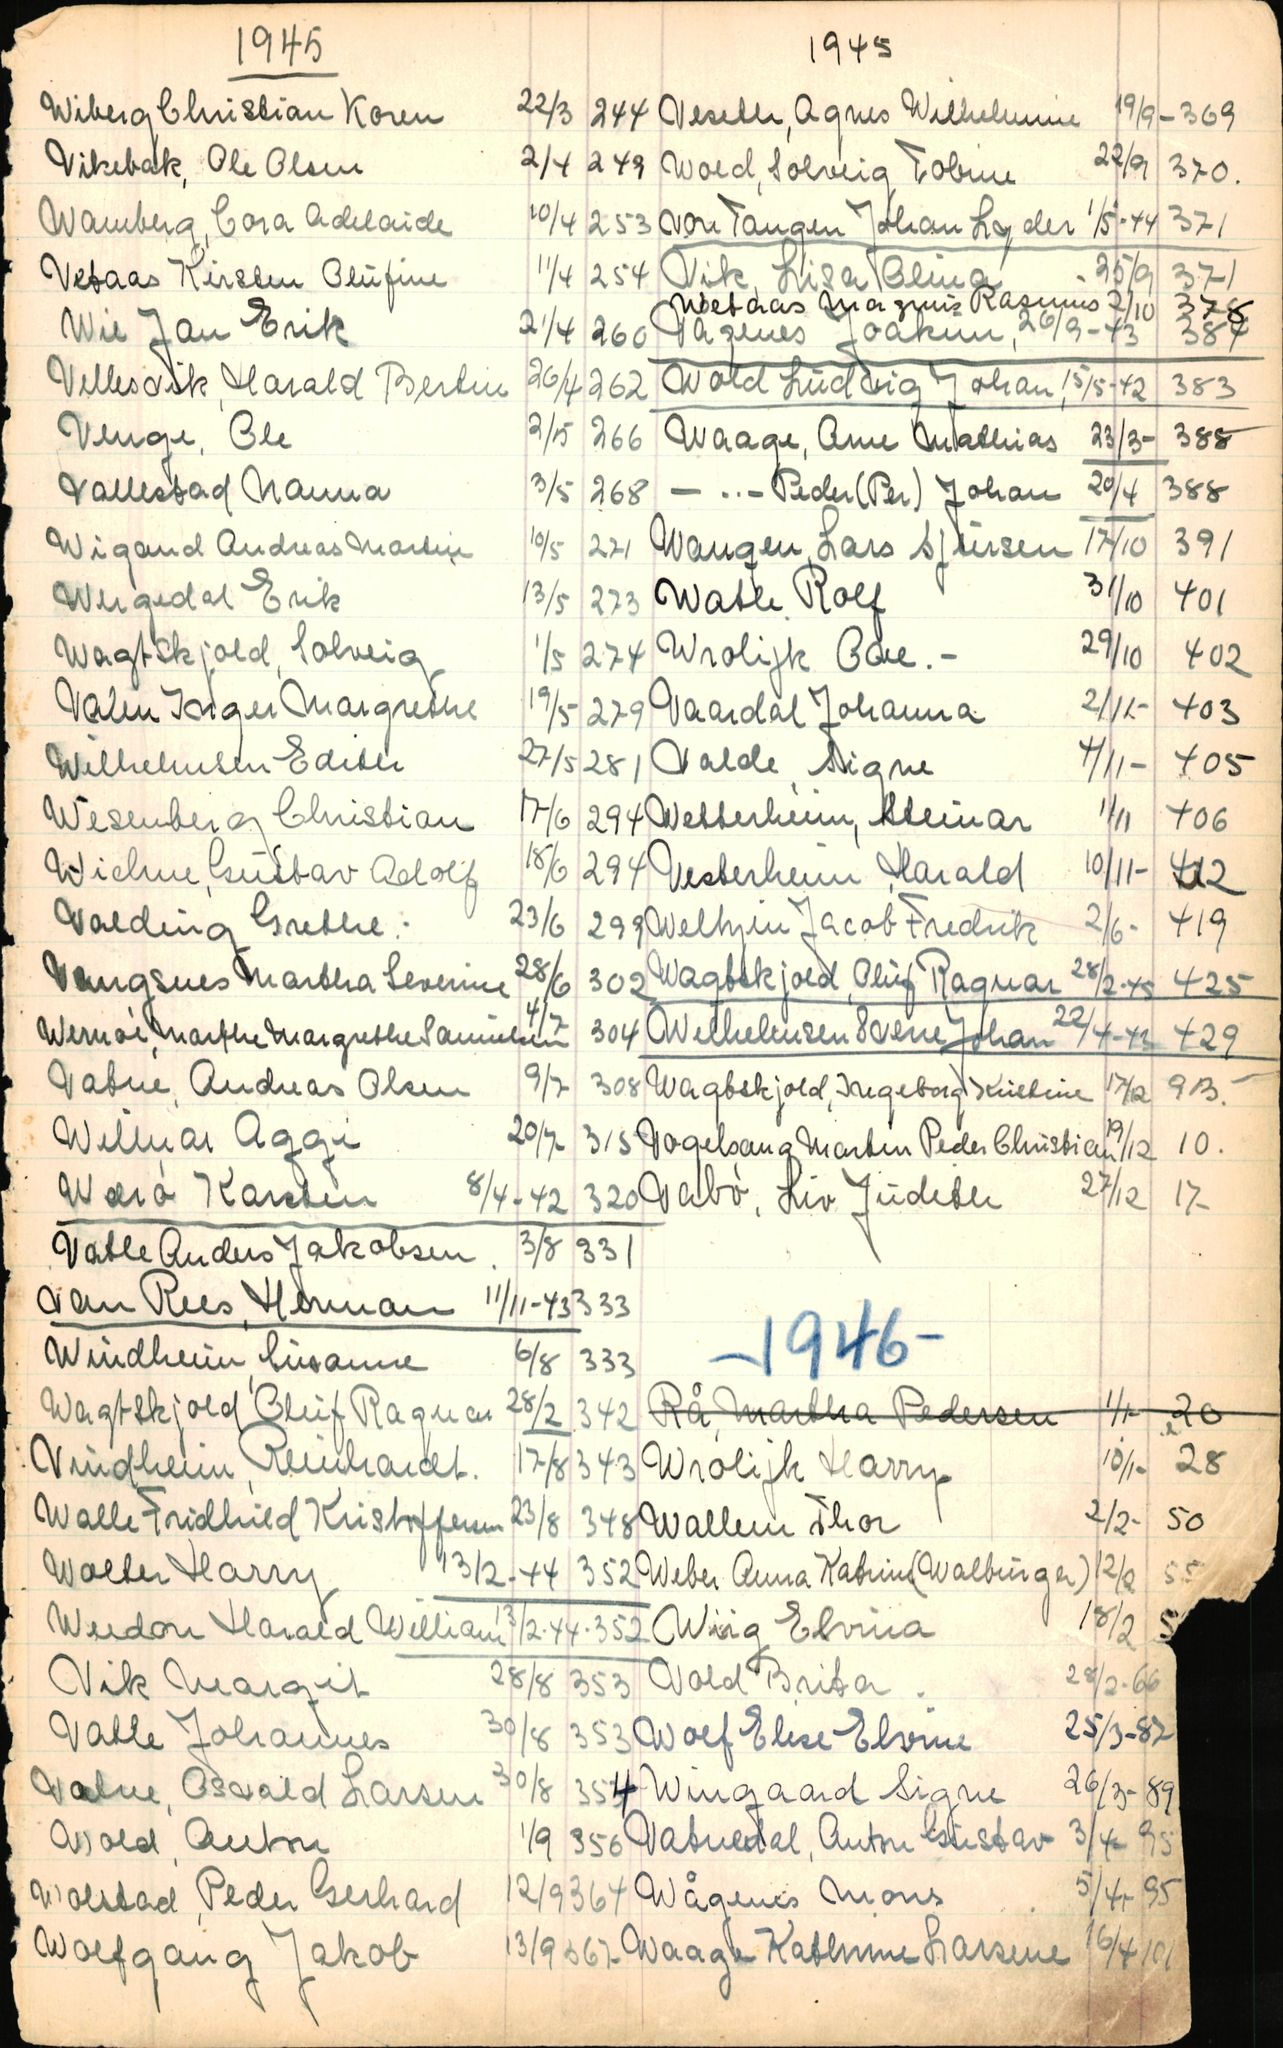 1945
Wiberg Christian Koren 22/3 244
Vikebak, Ole Olsen 2/4 249
Wamberg, Cora Adelaide 10/4 253
Vetaas Kirsten Olufine 11/4 254
Wie Jan Erik 21/4 260
Vellesvik, Harald Bertin 26/4 262
Venge, Ole 2/5 266
Vallestad Nanna 3/5 268
Wigand Andreas Martin 10/5 271
Wergedal Erik 13/5 273
Wagtskjold, Solveig 1/5 274
Valen Inger Margrethe 19/5 279
Wilhelmsen Edith 27/5 281
Wesenberg Christian 17/6 294
Wichne, Gustav Adolf 18/6 294
Valding Grethe 23/6 299
Vangsnes Martha Severine 28/6 302
Wernøe, Marthe Margrethe Samuelsen 4/7 304
Vatne, Andreas Olsen 9/7 308
Willmar Aggi 20/7 315
Værø Karsten 8/4-42 320
Vatle Anders Jakobsen 3/8 331
van Rees, Herman 11/11-43 333
Windheim, Susanne 6/8 333
Wagtskjold Oluf Ragnar 28/2 342
Vindheim, Reinhardt. 17/8 343
Walle Fridhild Kristoffersen 23/8 348
Wolter Harry 13/2-44 352
Weedon Harald William 13/2-44-352
Vik Margit 28/8 353
Vatle Johannes 30/8 353
Vatne, Osvald Larsen 30/8 354
Wold, Anton 1/9 356
Wolstad, Peder Gerhard 12/9 364
Wolfgang Jakob 13/9 367
1945
Veseth, Agnes Wilhelmine 19/9-369
Wold, Solveig Tobine 22/9 370.
von Tangen Johan Lyder 1/5-44 371
Vik, Lisa Olina 25/9 371
Wetaas Magnus Rasmus 2/10 378
Vågenes Joakim, 26/9-43 384
Wold Ludvig Johan, 15/5-42 383
Waage, Arne Mathias 23/3- 388
— ··— Peder (Per) Johan 20/4 388
Wangen, Lars Sjursen 17/10 391
Watle Rolf 31/10 401
Wrolijk Ove.- 29/10 402
Vaardal Johanna 2/11- 403
Valde Signe 4/11- 405
Vetterheim, Steinar 1/11 406
Vesterheim Harald 10/11- 412
Welhjin Jacob Fredrik 2/6- 419
Wagtskjold, Oluf Ragnar 28/2-45 425
Wilhelmsen Sverre Johan 22/4-43 429
Wagtskjold, Ingeborg Kristine 17/12 9B.
Vogelsang Martin Peder Christian 19/12 10.
Vabø, Liv Judith 27/12 17-
1946-
Rå, Martha Pedersen 1/1- 20
Wrolijk Harry 10/1- 28
Wallem Thor 2/2- 50
Weber Anna Katrine (Walburger) 12/2 55
Wiig Elvina 18/2 5
Vold Brita. 28/2-66
Wolf Elise Elvine 25/3-87
Wingaard Signe 26/3-89
Vatnedal, Anton Gustav 3/4- 95
Wågenes Mons 5/4- 95
Waage Kathrine Larsene 16/4 101